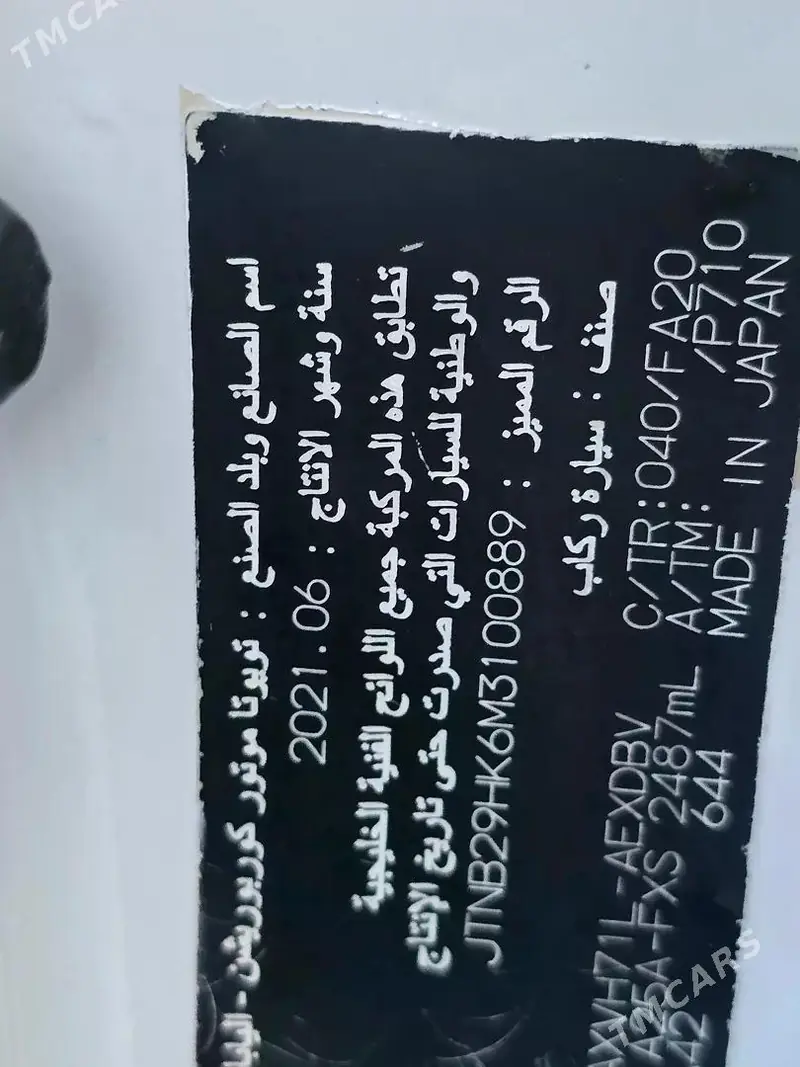 TMCARS
اسم الصانع وبلد الصنع : تويوتا موتور كوربوريشن - اليابا
سنة وشهر الانتاج : 2021.06
تطابق هذه المركبة جميع اللوائح الفنية الخليجية
والوطنية للسيارات التي صدرت حتى تاريخ الإنتاج
الرقم المميز : JTNB29HK6M3100889
صنف : سيارة ركاب
AXVH71L-AEXDBV C/TR:040/FA20
A25A-FXS 2487mL A/TM: /P710
42 644 MADE IN JAPAN
TMCARS